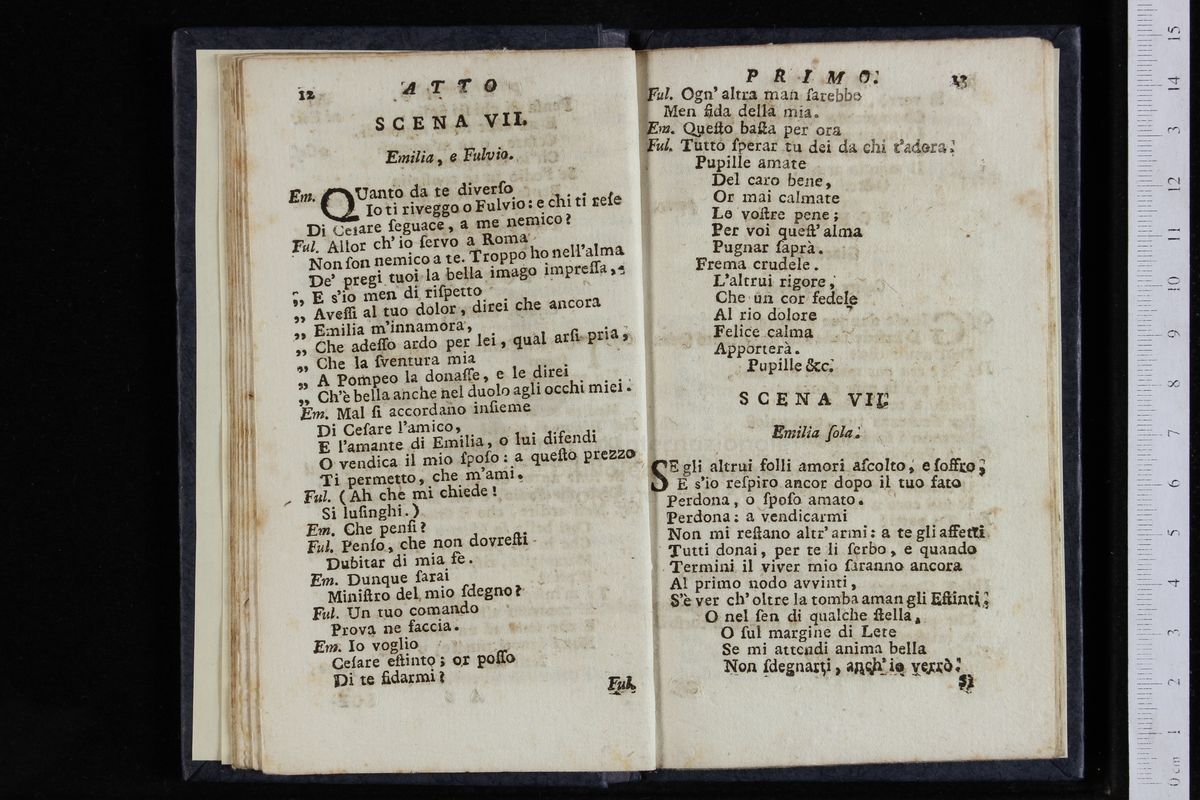 12 ATTO
SCENA VII.
Emilia, e Fulvio.
Em. QUanto da te diverſo
Io ti riveggo o Fulvio: e chi ti reſe
Di Ceſare ſeguace, a me nemico?
Ful. Allor ch' io ſervo a Roma
Non ſon nemico a te. Troppo ho nell'alma
De' pregi tuoi la bella imago impreſſa,
„ E s'io men di riſpetto
„ Aveſſi al tuo dolor, direi che ancora
„ Emilia m'innamora,
„ Che adeſſo ardo per lei, qual arſi pria,
„ Che la ſventura mia
„ A Pompeo la donaſſe, e le direi
„ Ch'è bella anche nel duolo agli occhi miei.
Em. Mal ſi accordano inſieme
Di Ceſare l'amico,
E l'amante di Emilia, o lui difendi
O vendica il mio ſpoſo: a queſto prezzo
Ti permetto, che m'ami.
Ful. (Ah che mi chiede!
Si luſinghi.)
Em. Che penſi?
Ful. Penſo, che non dovreſti
Dubitar di mia fe.
Em. Dunque ſarai
Miniſtro del mio ſdegno?
Ful. Un tuo comando
Prova ne faccia.
Em. Io voglio
Ceſare eſtinto; or poſſo
Di te fidarmi?
Ful.
PRIMO. 13
Ful. Ogn' altra man ſarebbe
Men fida della mia.
Em. Queſto baſta per ora
Ful. Tutto ſperar tu dei da chi t'adora.
Pupille amate
Del caro bene,
Or mai calmate
Le voſtre pene;
Per voi queſt' alma
Pugnar ſaprà.
Frema crudele.
L'altrui rigore,
Che un cor fedele
Al rio dolore
Felice calma
Apporterà.
Pupille &c.
SCENA VII.
Emilia ſola.
SE gli altrui folli amori aſcolto, e ſoffro,
E s'io reſpiro ancor dopo il tuo fato
Perdona, o ſpoſo amato.
Perdona: a vendicarmi
Non mi reſtano altr' armi: a te gli affetti
Tutti donai, per te li ſerbo, e quando
Termini il viver mio ſaranno ancora
Al primo nodo avvinti,
S'è ver ch' oltre la tomba aman gli Eſtinti.
O nel ſen di qualche ſtella,
O ſul margine di Lete
Se mi attendi anima bella
Non ſdegnarti, anch' io verrò.
Sì